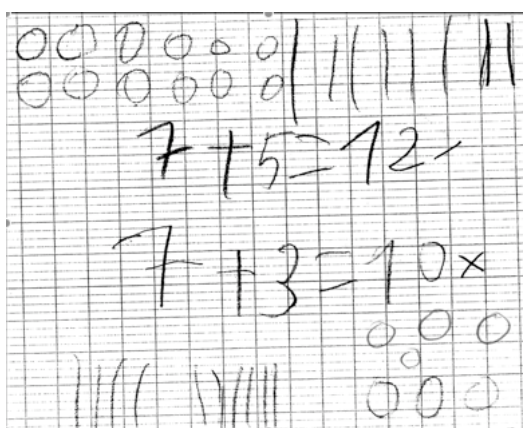 7+5=12
7+3=10x